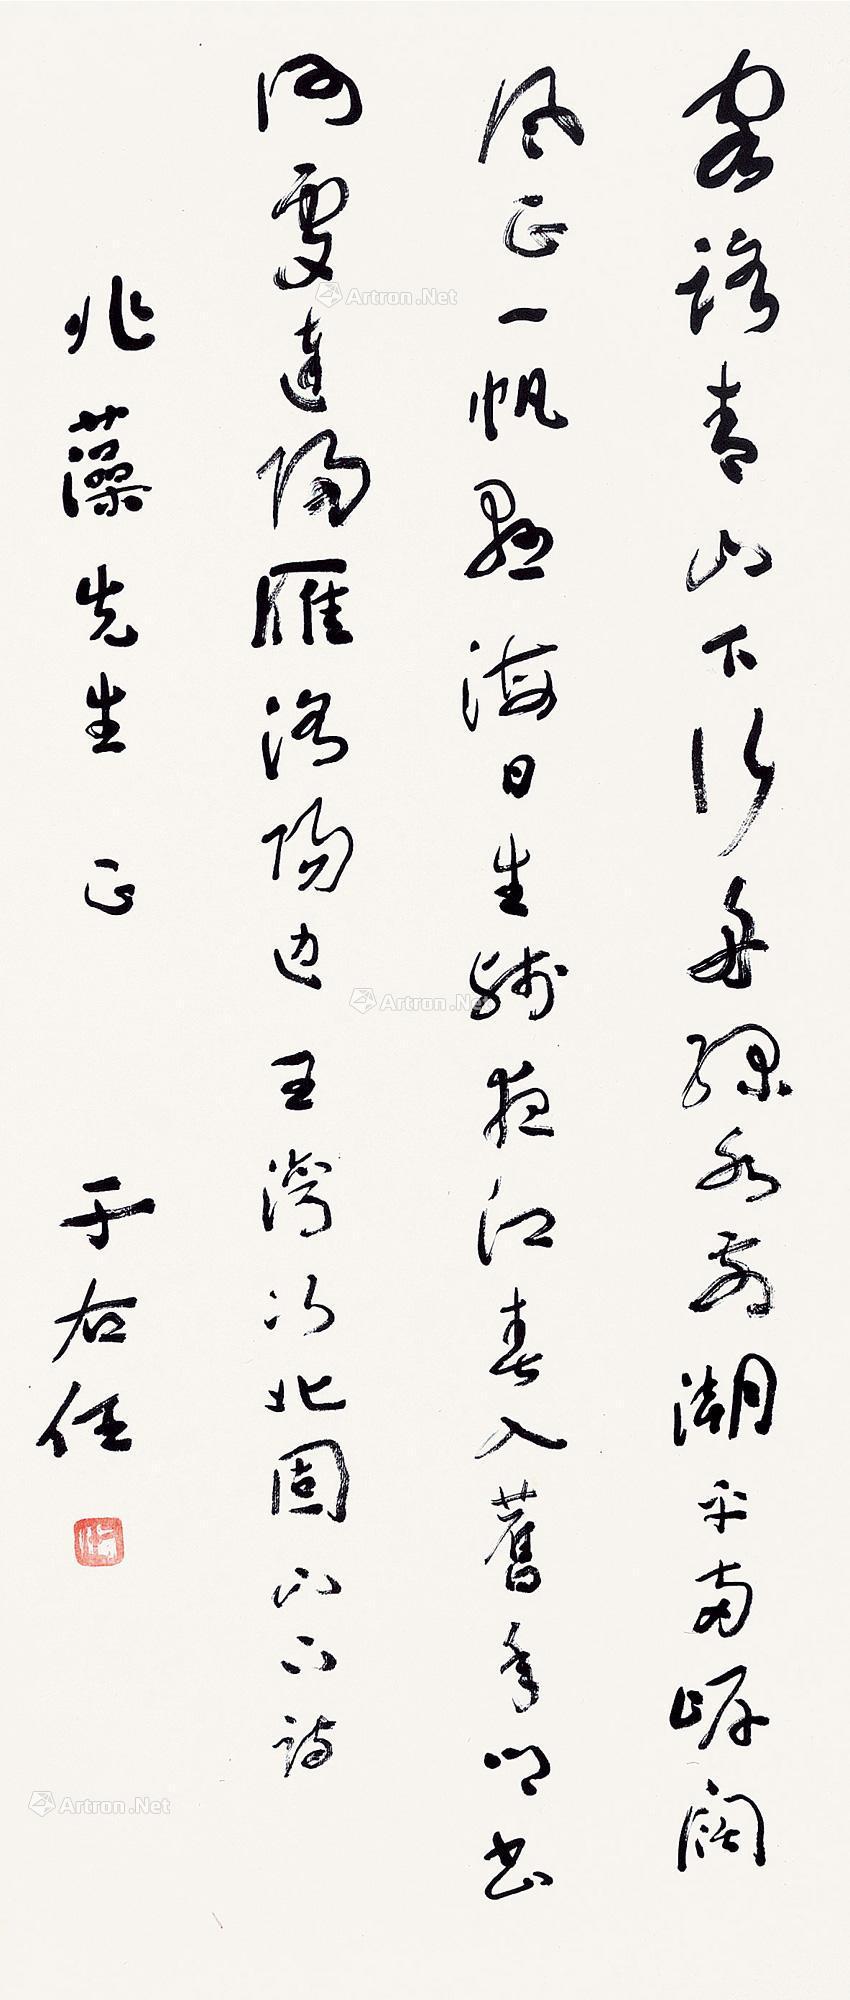 客路青山下行舟綠水前潮平兩岸闊
風正一帆懸海日生殘夜江春入舊年鄉書
何處達歸雁洛陽邊 王灣次北固山下詩
兆藻先生 正 于右任
Artron.Net
Artron.Net
Artron.Net